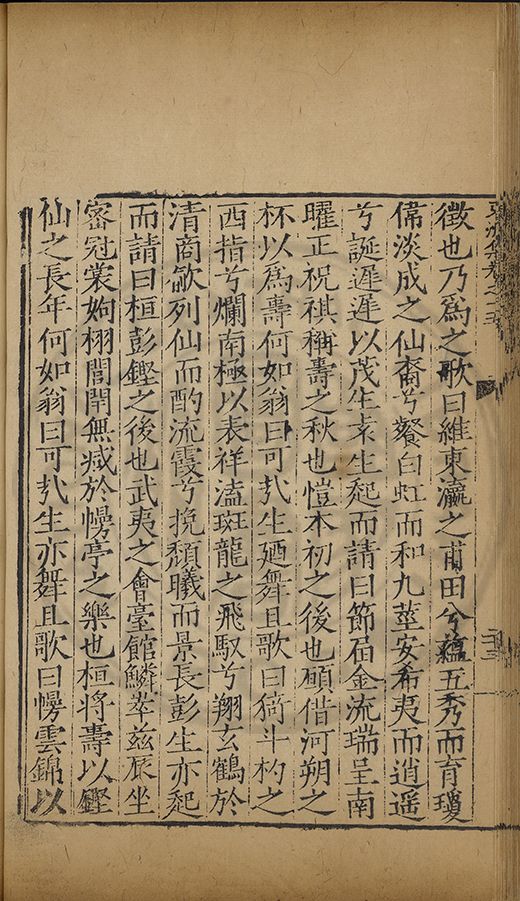 徵也乃為之歌曰維東瀛之甫田兮蘊五秀而育瓊
僃淡成之仙裔兮餐白虹而和九莖安希夷而逍遥
兮誕遲遲以茂生袁生起而請曰節屆金流瑞呈南
曜正祝祺稱壽之秋也愷本初之後也願借河朔之
杯以為壽何如翁曰可哉生廼舞且歌曰猗斗杓之
西指兮爛南極以表祥溘斑龍之飛馭兮翔玄鶴於
清商歙列仙而酌流霞兮挽頽曦而景長彭生亦起
而請曰桓彭鏗之後也武夷之會臺館鱗萃茲辰坐
密冠裳姁栩誾無减於幔亭之樂也桓將壽以鏗
仙之長年何如翁曰可哉生亦舞且歌曰幔雲錦以